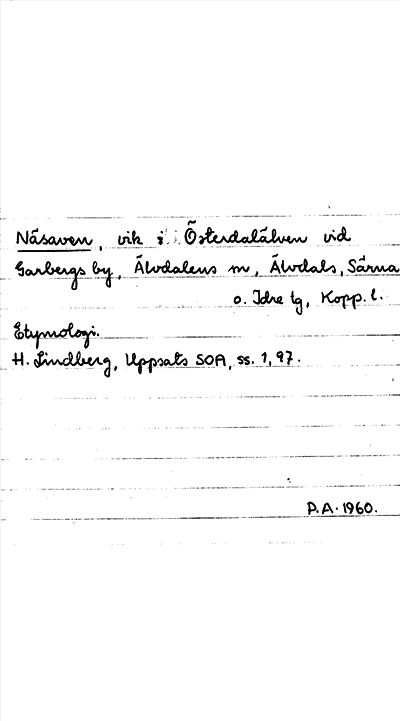 Näsaven, vik i Österdalälven vid
Garbergs by, Älvdalens sn, Älvdals, Särna
o. Idre tg, Kopp. l.
Etymologi.
H. Lindberg, Uppsats SOA, ss. 1, 97.
P.A. 1960.